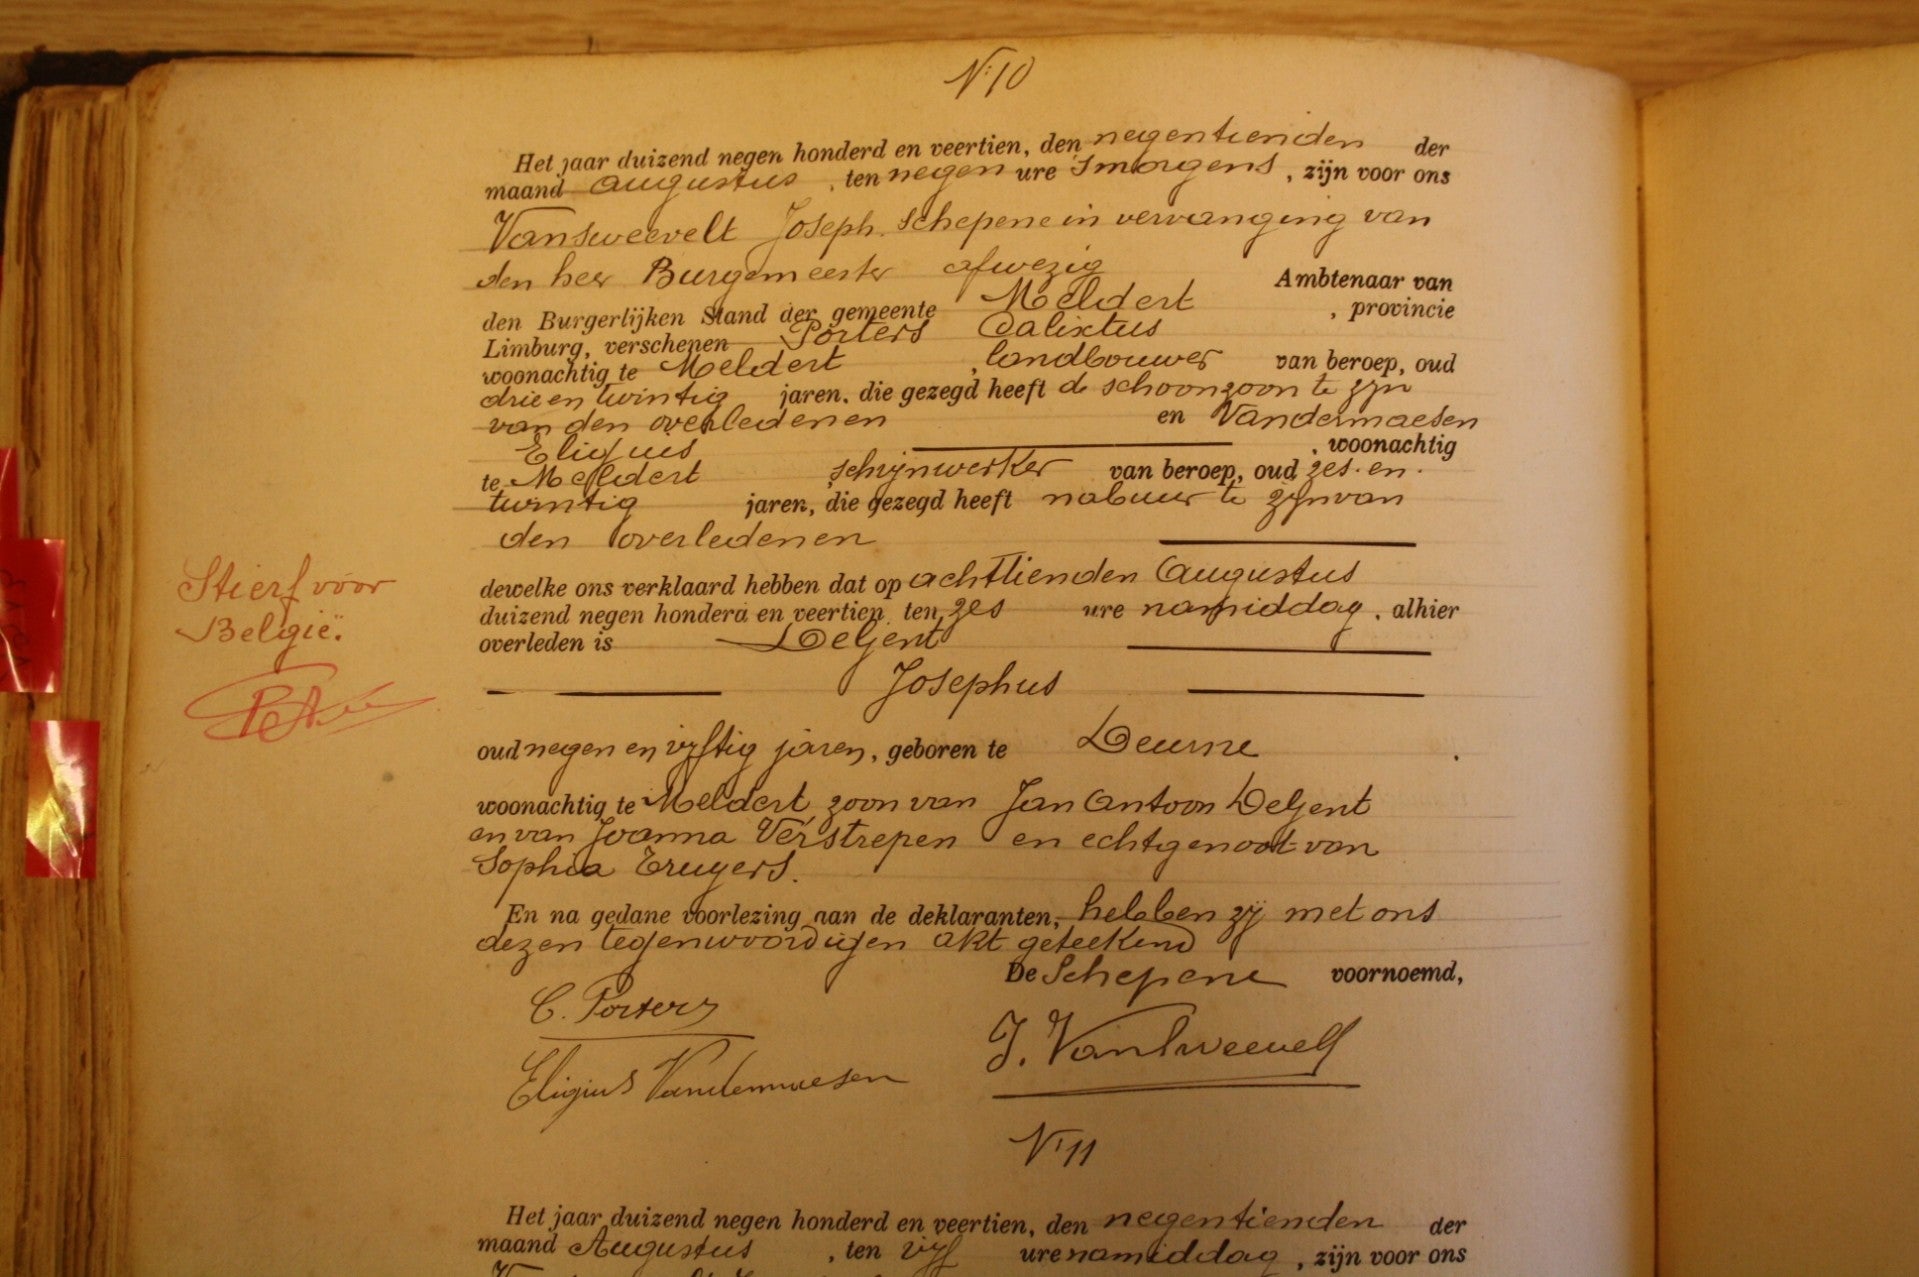 N: 10
Het jaar duizend negen honderd en veertien, den negentienden der
maand augustus, ten negen ure 's morgens, zijn voor ons
Vansweevelt Joseph. schepene in vervanging van
den heer Burgemeester afwezig
Ambtenaar van
den Burgerlijken Stand der gemeente Meldert, provincie
Limburg, verschenen Porters Calixtus
woonachtig te Meldert, landbouwer van beroep, oud
drie en twintig jaren, die gezegd heeft de schoonzoon te zyn
van den overledenen en Vandermaesen
Eligius, woonachtig
te Meldert, schrijnwerker van beroep, oud zes en
twintig jaren, die gezegd heeft nabuur te zyn van
den overledenen
dewelke ons verklaard hebben dat op achttienden Augustus
duizend negen honderd en veertien ten zes ure namiddag, alhier
overleden is Delgent
Josephus
oud negen en vyftig jaren, geboren te Deurne.
woonachtig te Meldert, zoon van Jan Antoon Delgent
en van Joanna Verstrepen en echtgenoot van
Sophia Truyers.
En na gedane voorlezing aan de deklaranten, hebben zij met ons
dezen tegenwoordigen akt geteekend
De Schepene voornoemd,
C. Porters
J. Vansweevelt
Eligius Vandermaesen
Stierf voor
België.
N: 11
Het jaar duizend negen honderd en veertien, den negentienden der
maand Augustus, ten vijf ure namiddag, zijn voor ons